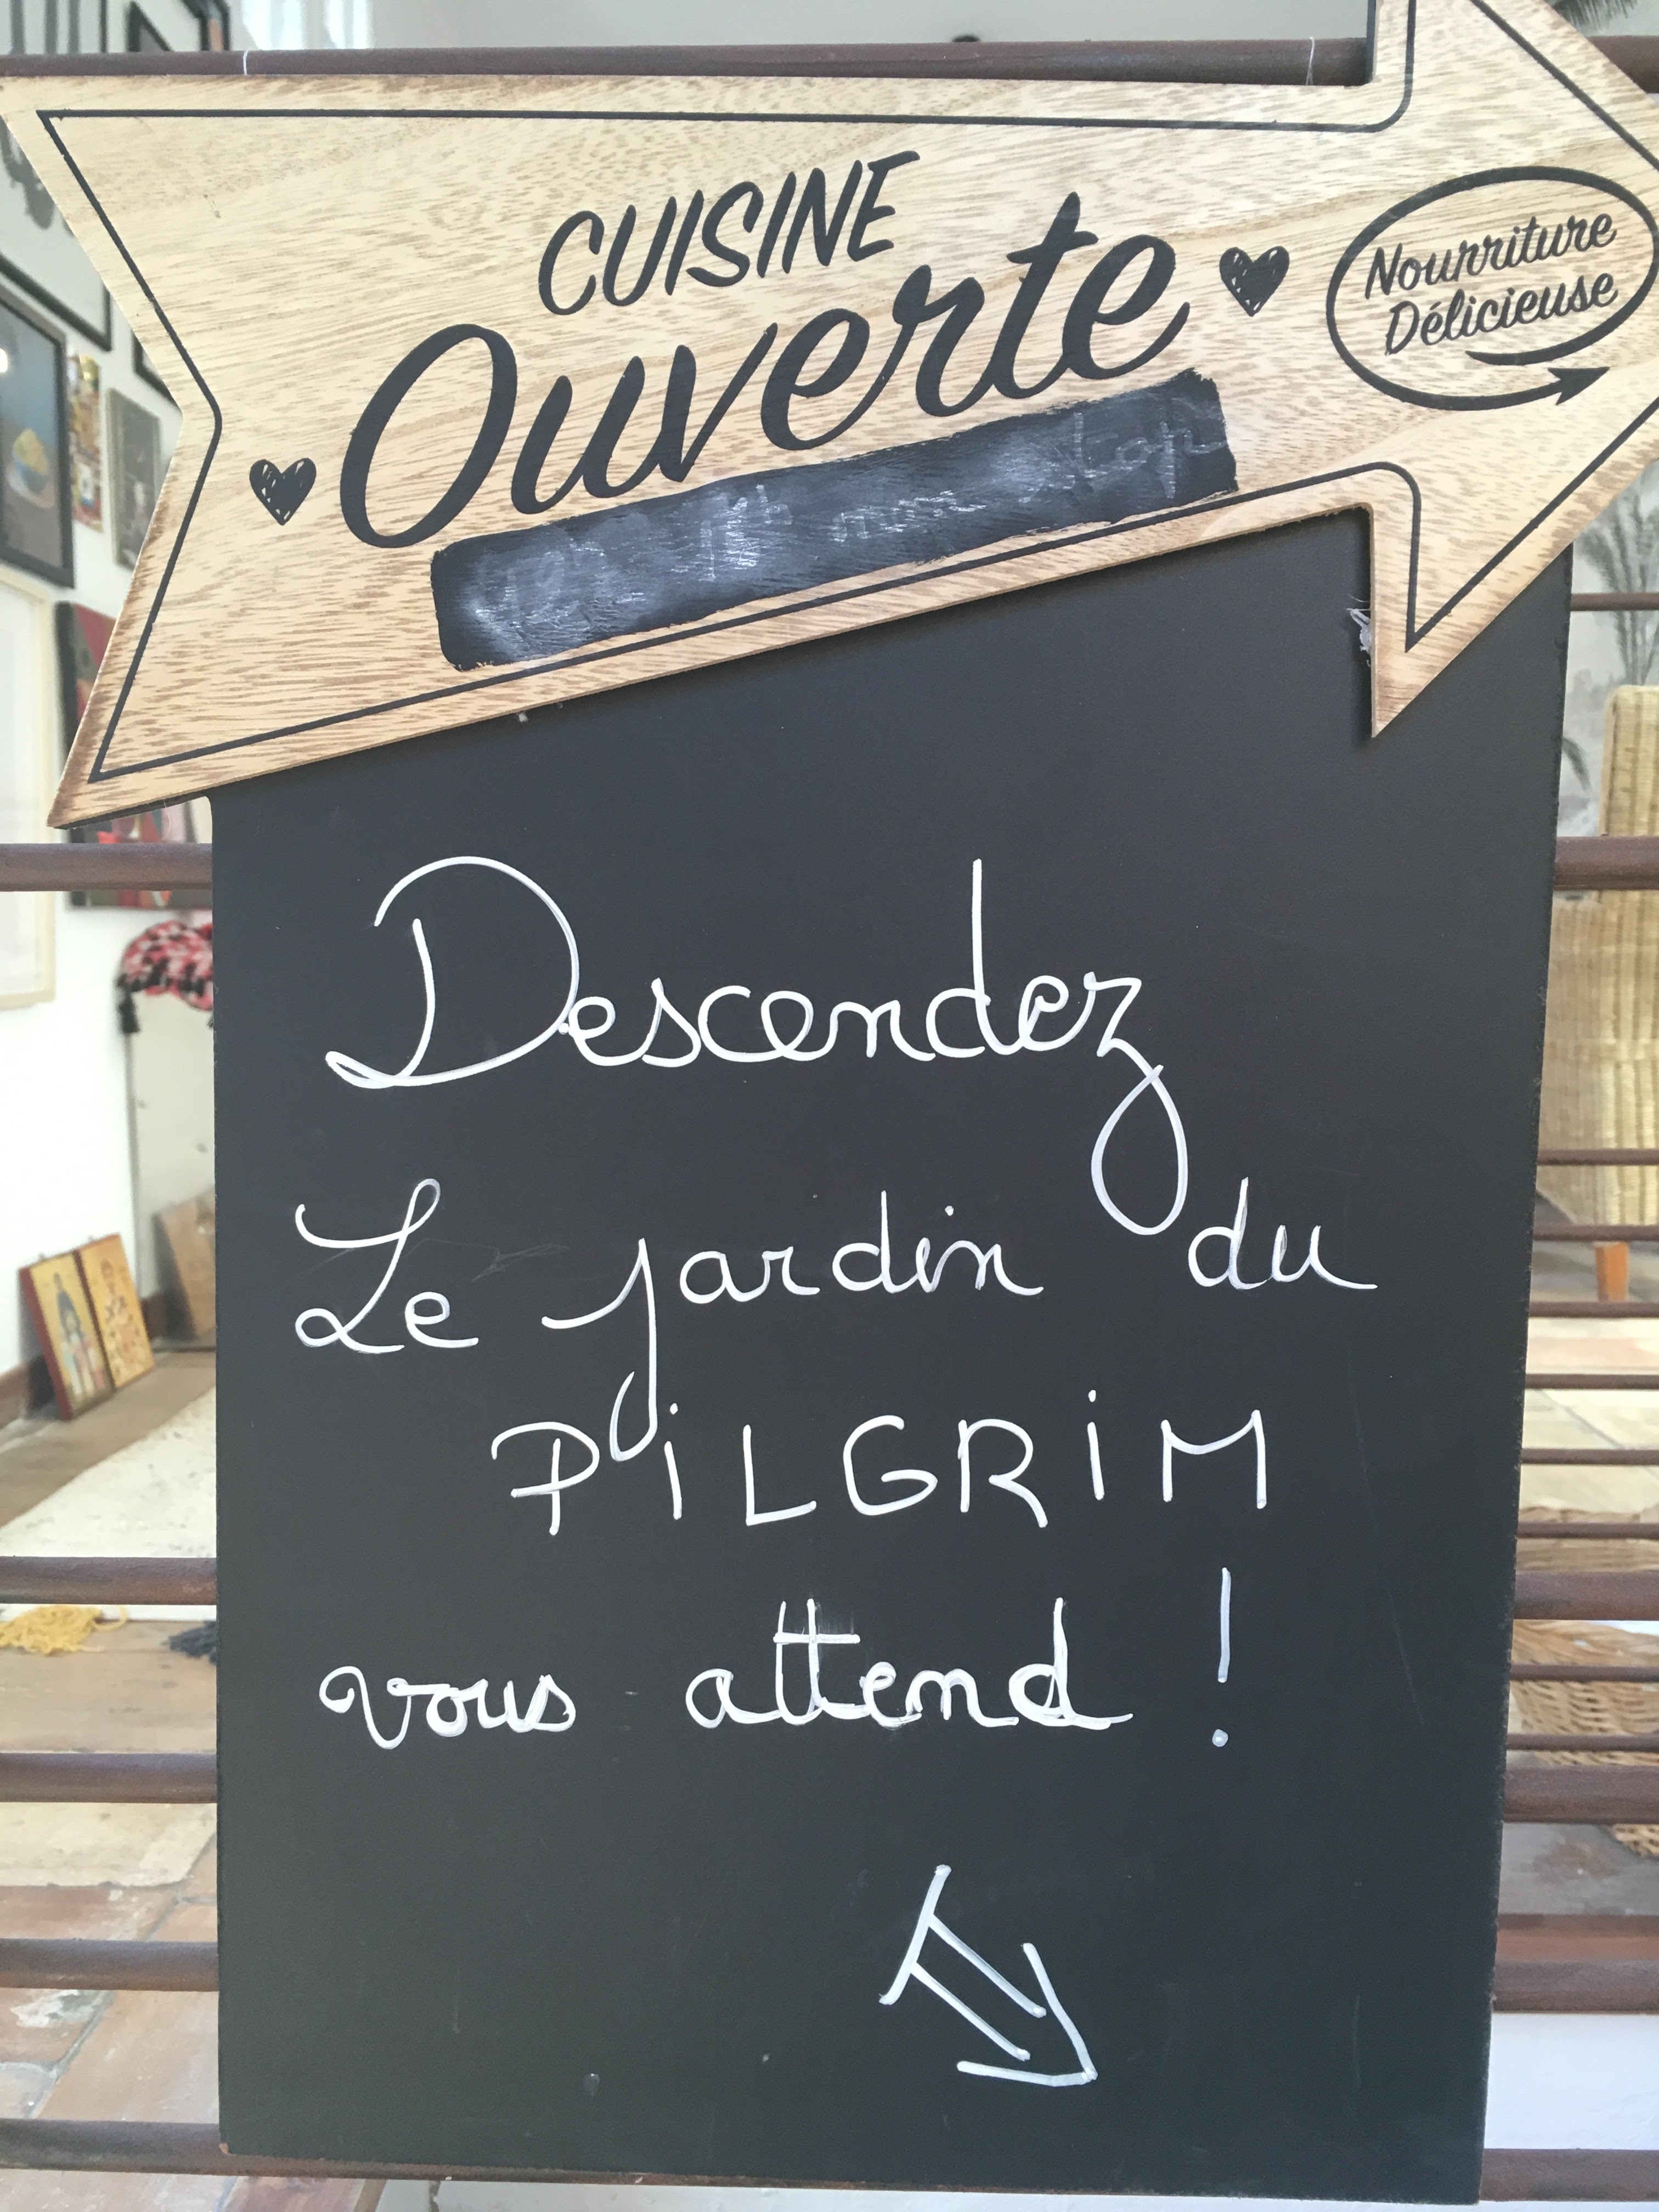 CUISINE
Ouverte
Nourriture
Délicieuse
Descendez
Le jardin du
PiLGRiM
vous attend !